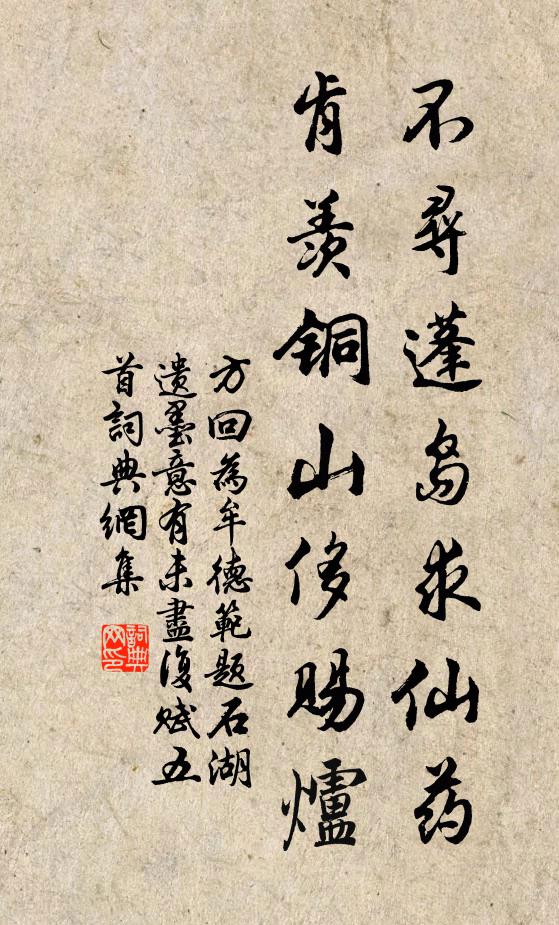 不尋蓬島求仙药
肯羨铜山侈賜爐
方回為牟德範題石湖
遺墨意有未盡復賦五
首詞典網集
詞典网印